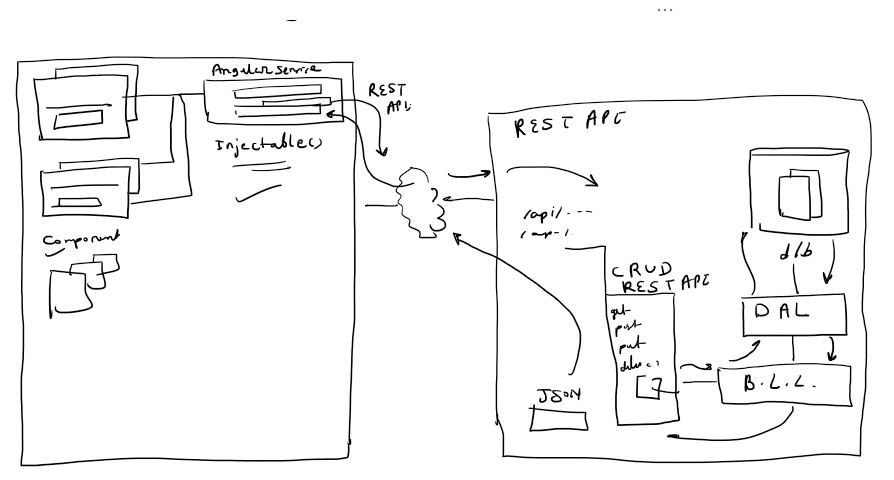 Angular Service
REST
API
Injectable()
Component
REST API
/api/---
CRUD
REST API
get
post
put
JSON
d/b
DAL
B.L.L.